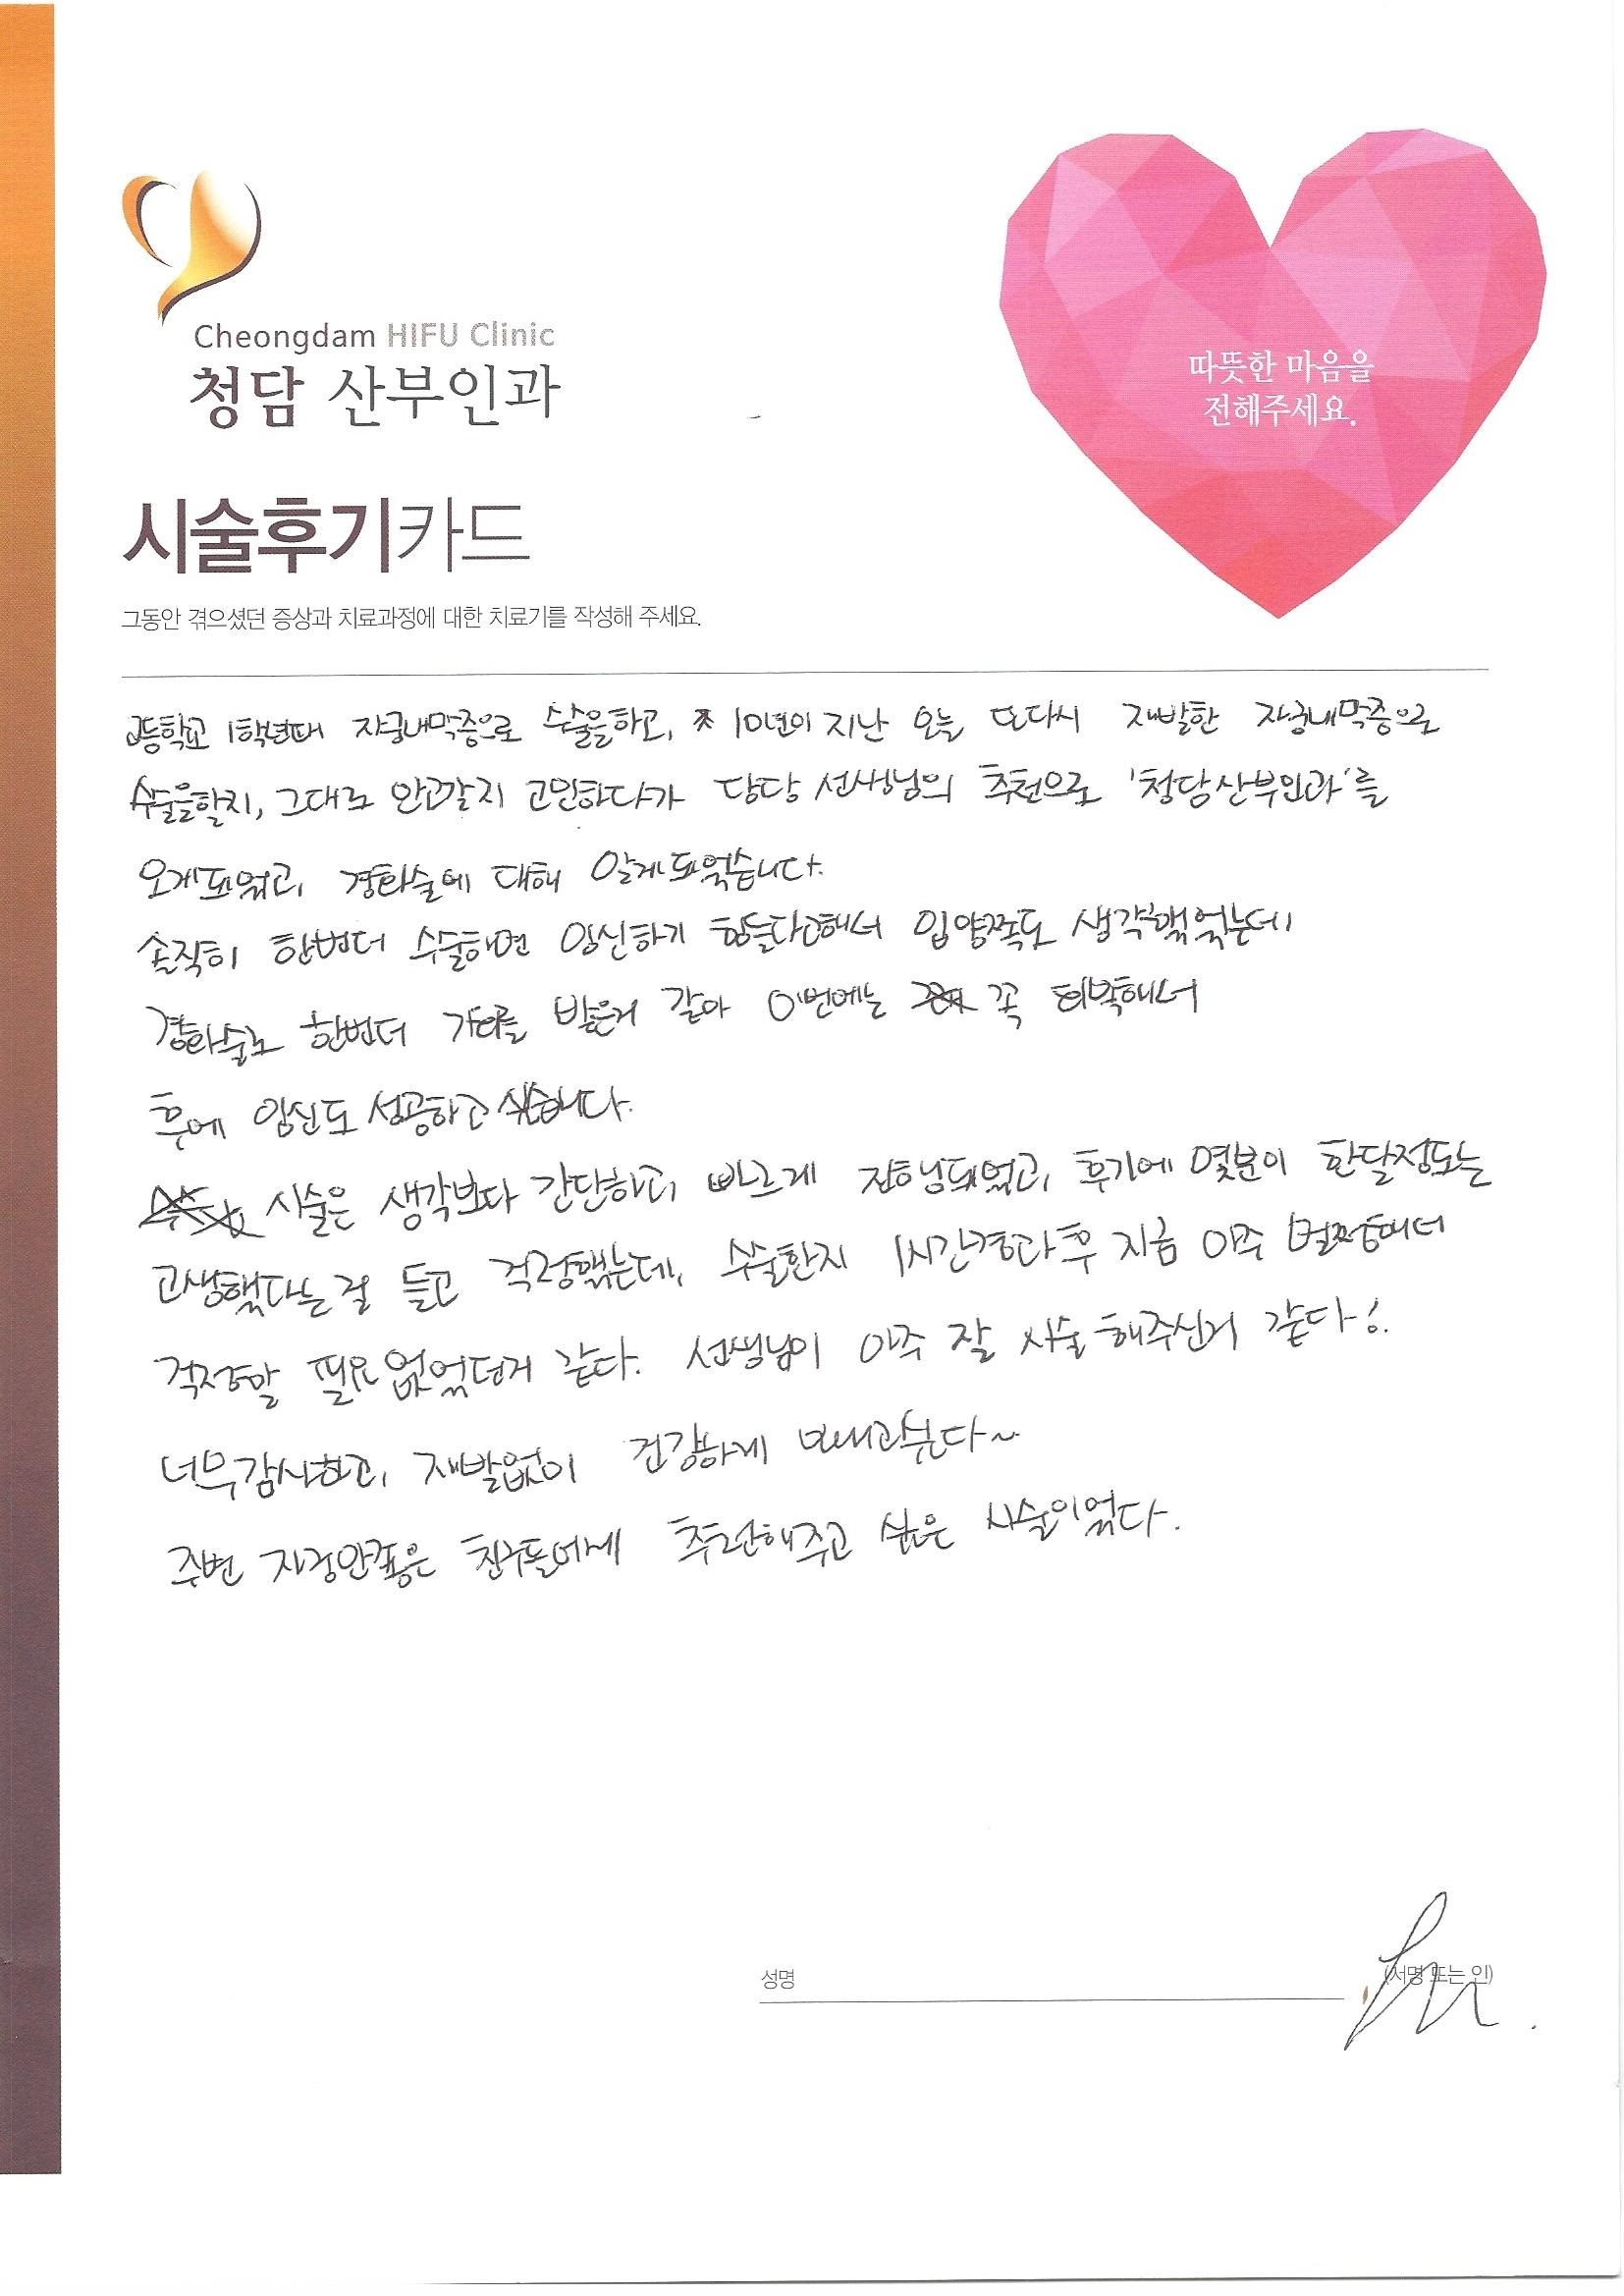 Cheongdam HIFU Clinic
청담 산부인과
따뜻한 마음을
전해주세요.
시술후기카드
그동안 겪으셨던 증상과 치료과정에 대한 치료기를 작성해 주세요.
고등학교 1학년때 자궁내막증으로 수술을하고, 10년이 지난 오늘 또다시 재발한 자궁내막증으로
수술을할지, 그대로 안고갈지 고민하다가 담당 선생님의 추천으로 '청담산부인과'를
오게되었고, 경화술에 대해 알게되었습니다.
솔직히 한번더 수술하면 임신하기 힘들다고해서 입양쪽도 생각했었는데
경화술로 한번더 기회를 받은거 같아 이번에는 꼭 회복해서
후에 임신도 성공하고 싶습니다.
시술은 생각보다 간단하고, 빠르게 진행되었고, 후기에 몇분이 한달정도는
고생했다는걸 듣고 걱정했는데, 수술한지 1시간경과후 지금 아주 멀쩡해서
걱정할 필요없었던거 같다. 선생님이 아주 잘 시술해주신거 같다!.
너무감사하고, 재발없이 건강하게 보내고싶다~
주변 자궁안좋은 친구들에게 추천해주고 싶은 시술이었다.
성명
(서명 또는 인)